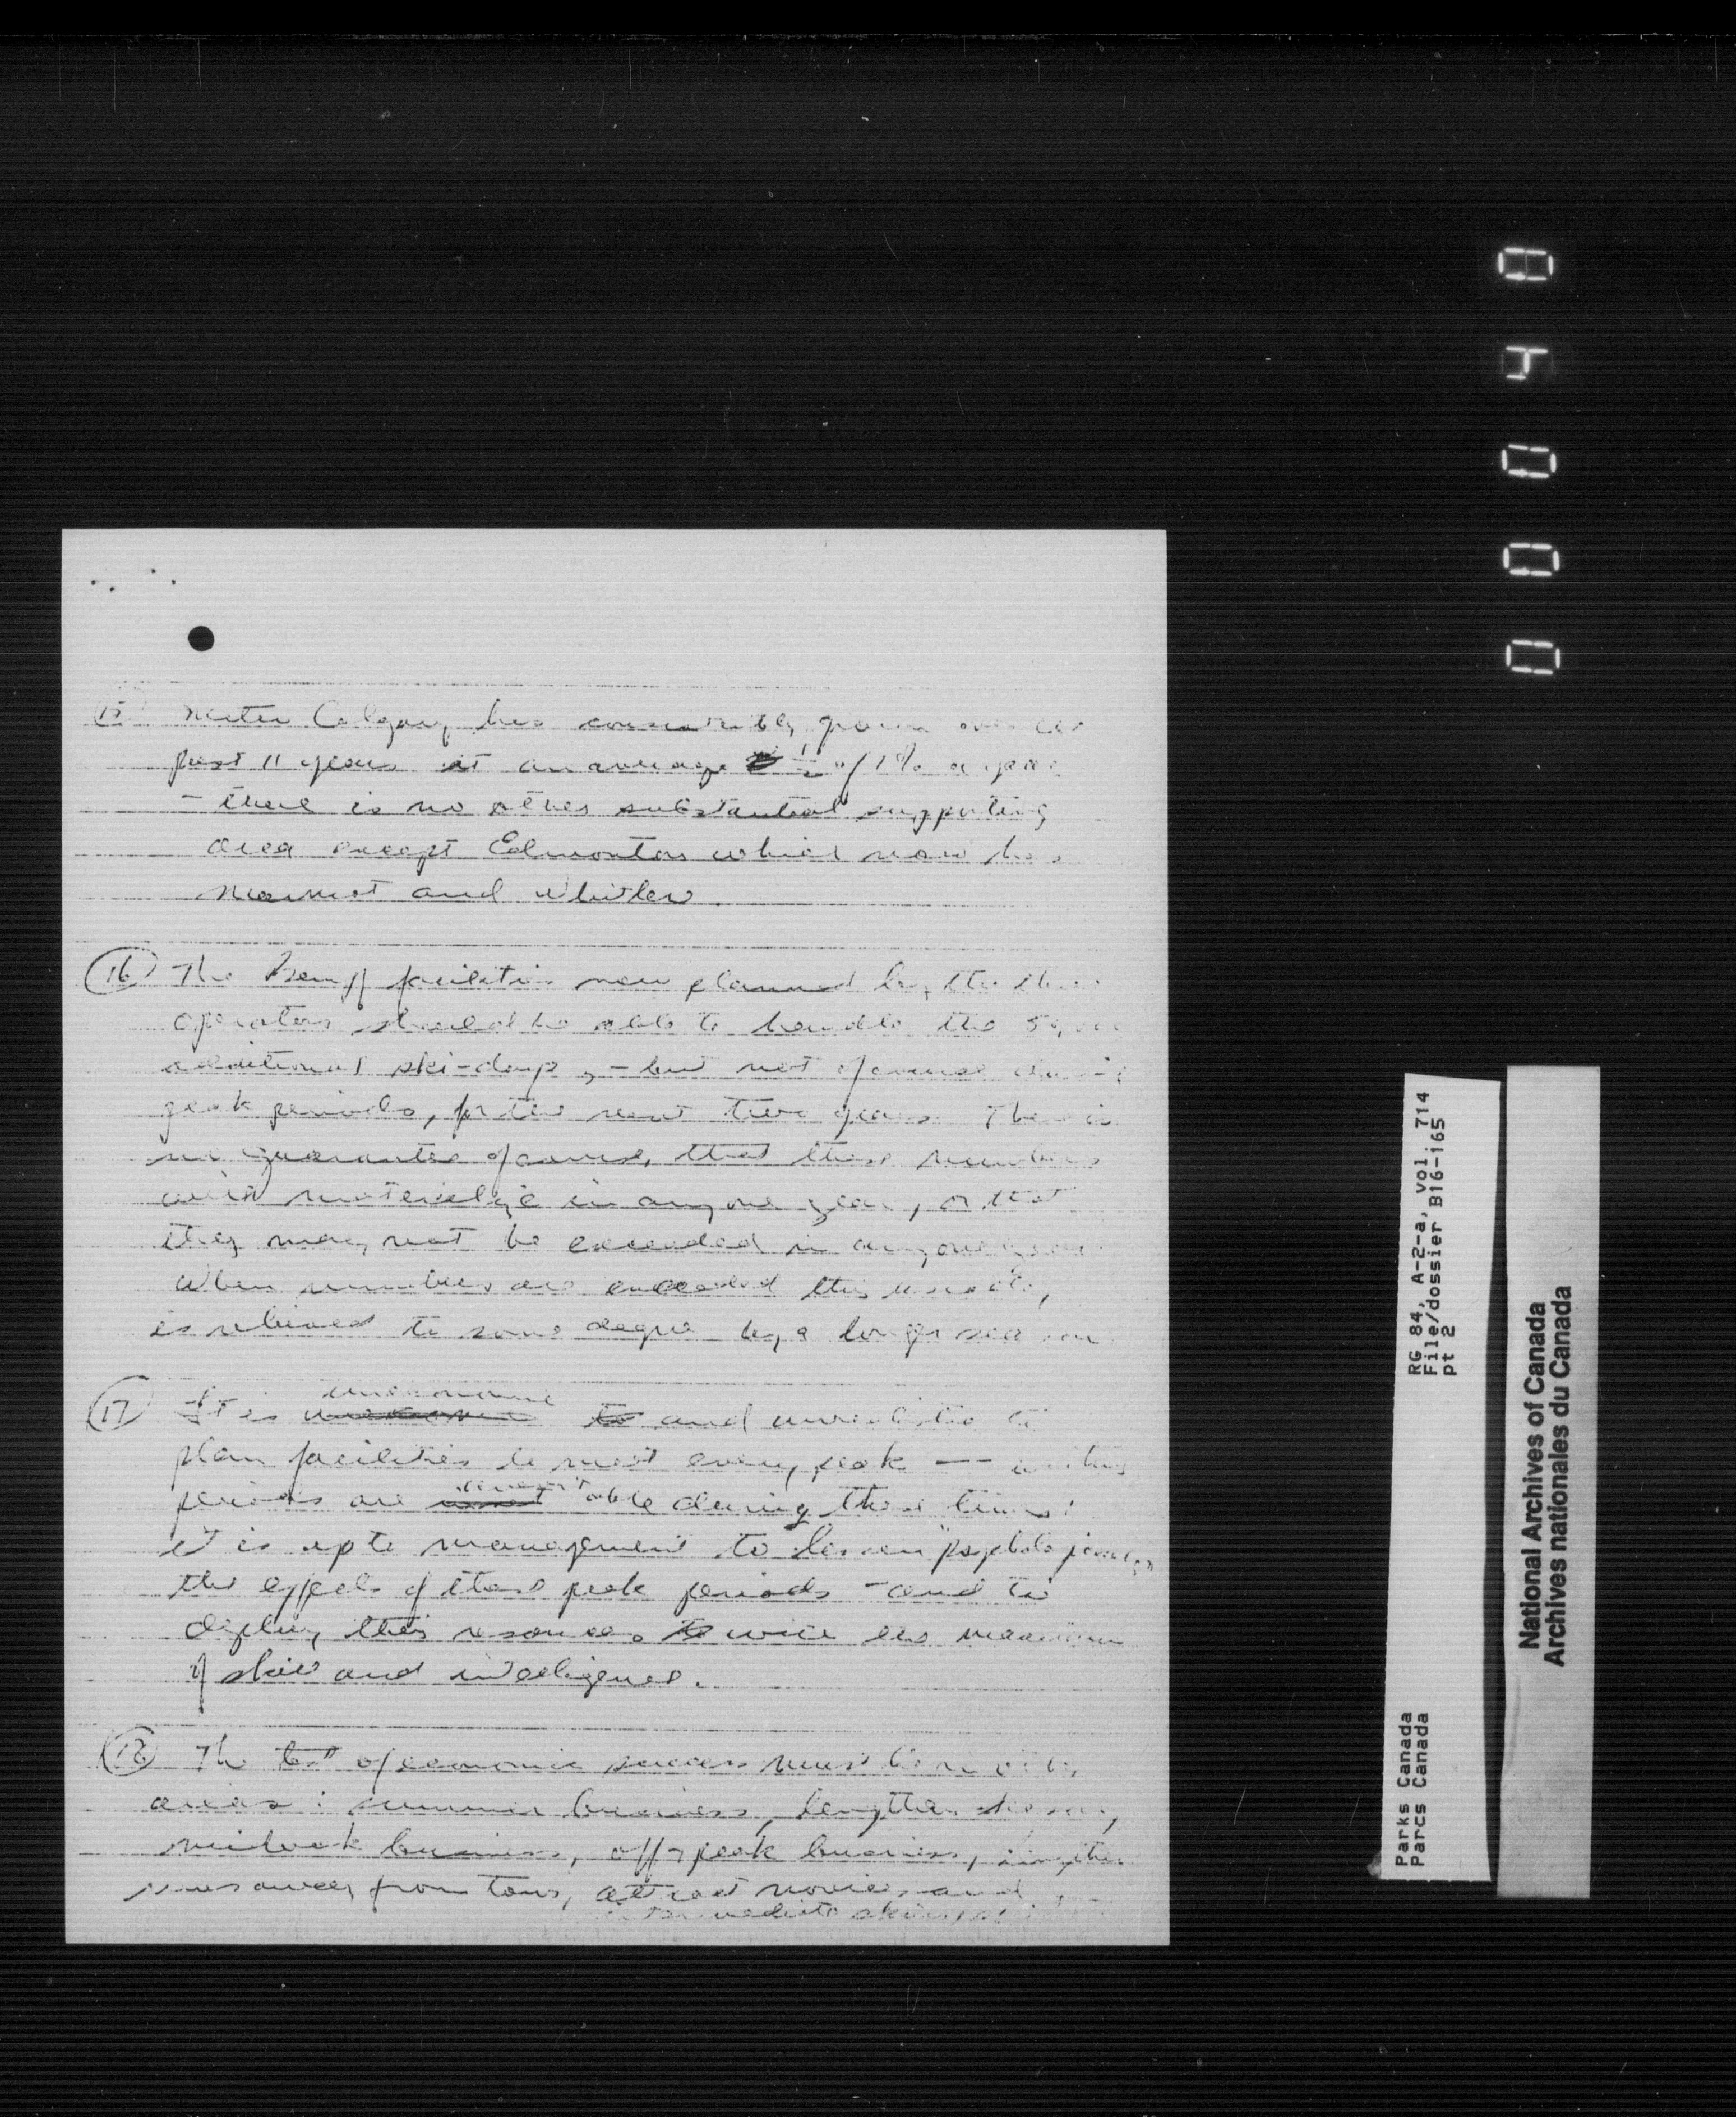 (15) Metro Calgary has consistently grown over
past 11 years at an average ½ of 1% a year
– there is no other substantial supporting
area except Edmonton which now has
Marmot and Whistler.
(16) The Banff facilities now planned by the three
operators should be able to handle the
additional ski-days, – but not of course during
peak periods, for the next two years. There is
no guarantee of course, that these numbers
will materialize in any one year, or that
they may not be exceeded in any one year.
When numbers are exceeded this usually
is relieved to some degree by a longer season
(17) It is uneconomic and unrealistic to
plan facilities to meet every peak — waiting
periods are able during these times:
it is up to management to lessen "psychologically"
the effects of these peak periods – and to
deploy their resources with
of skill and intelligence.
(18) The test of economic success must be
areas: summer business, lengthen season,
midweek business, off-peak business,
from tows, attract novices and
intermediate skiers
00048
RG 84, A-2-a, vol. 714
File/dossier B16-165
pt 2
Parks Canada
Parcs Canada
National Archives of Canada
Archives nationales du Canada